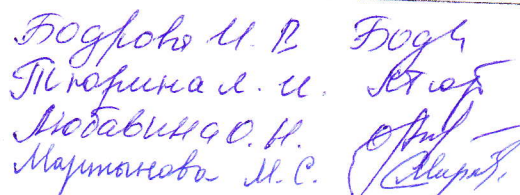 Бодрова И. В. Бодр
Тюрина Л. И. Тюр
Любавина О. Н.
Мартынова М. С.